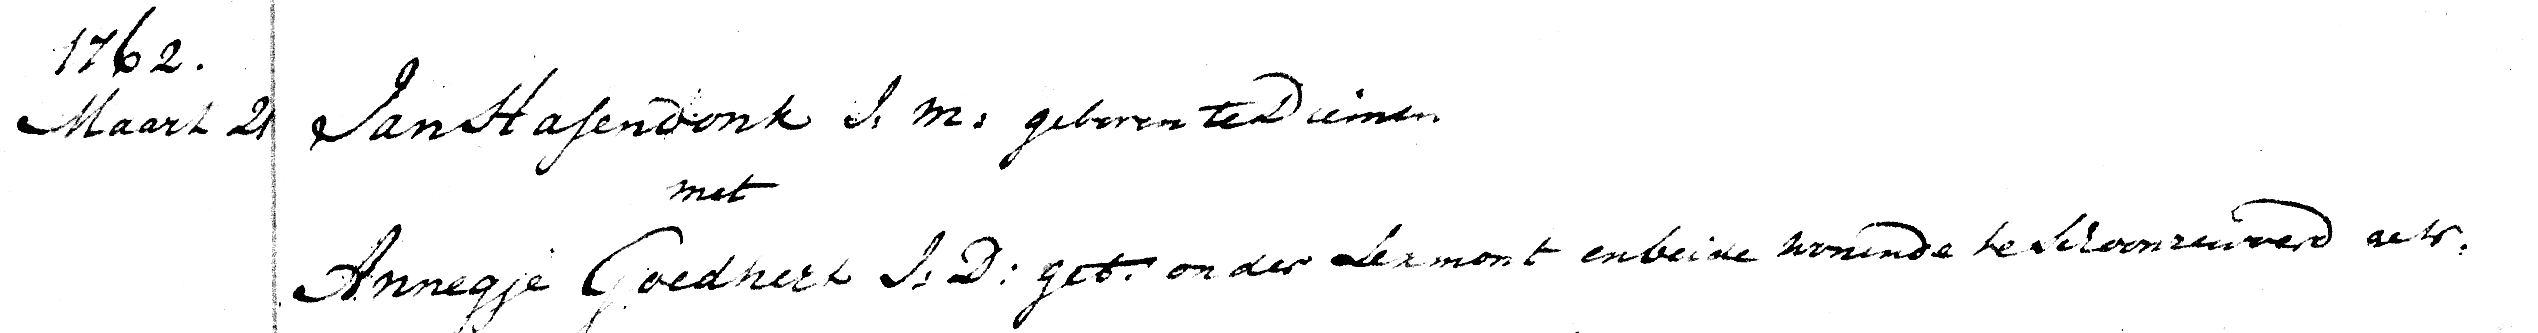 1762.
Maart 21 Jan Hasendonk J: m: geboren te Diemen
met
Annegje Goedhert J: D: geb. onder Lexmont en beide wonende te Schoonrewoerd getr.